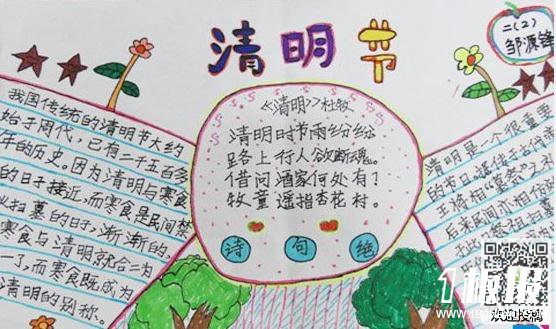 清明节
二(2)
邹源锋
我国传统的清明节大约
始于周代,已有二千五百多
年的历史。因为清明与寒食
的日子接近,而寒食是民间禁
火扫墓的日子,渐渐的,
寒食与清明就合二为
一了,而寒食既成为
清明的别称。
《清明》杜牧
清明时节雨纷纷
路上行人欲断魂。
借问酒家何处有?
牧童遥指杏花村。
诗 句 绝
清明是一个很重要
的节日
后来民间亦相仿
1板报
欢迎投稿